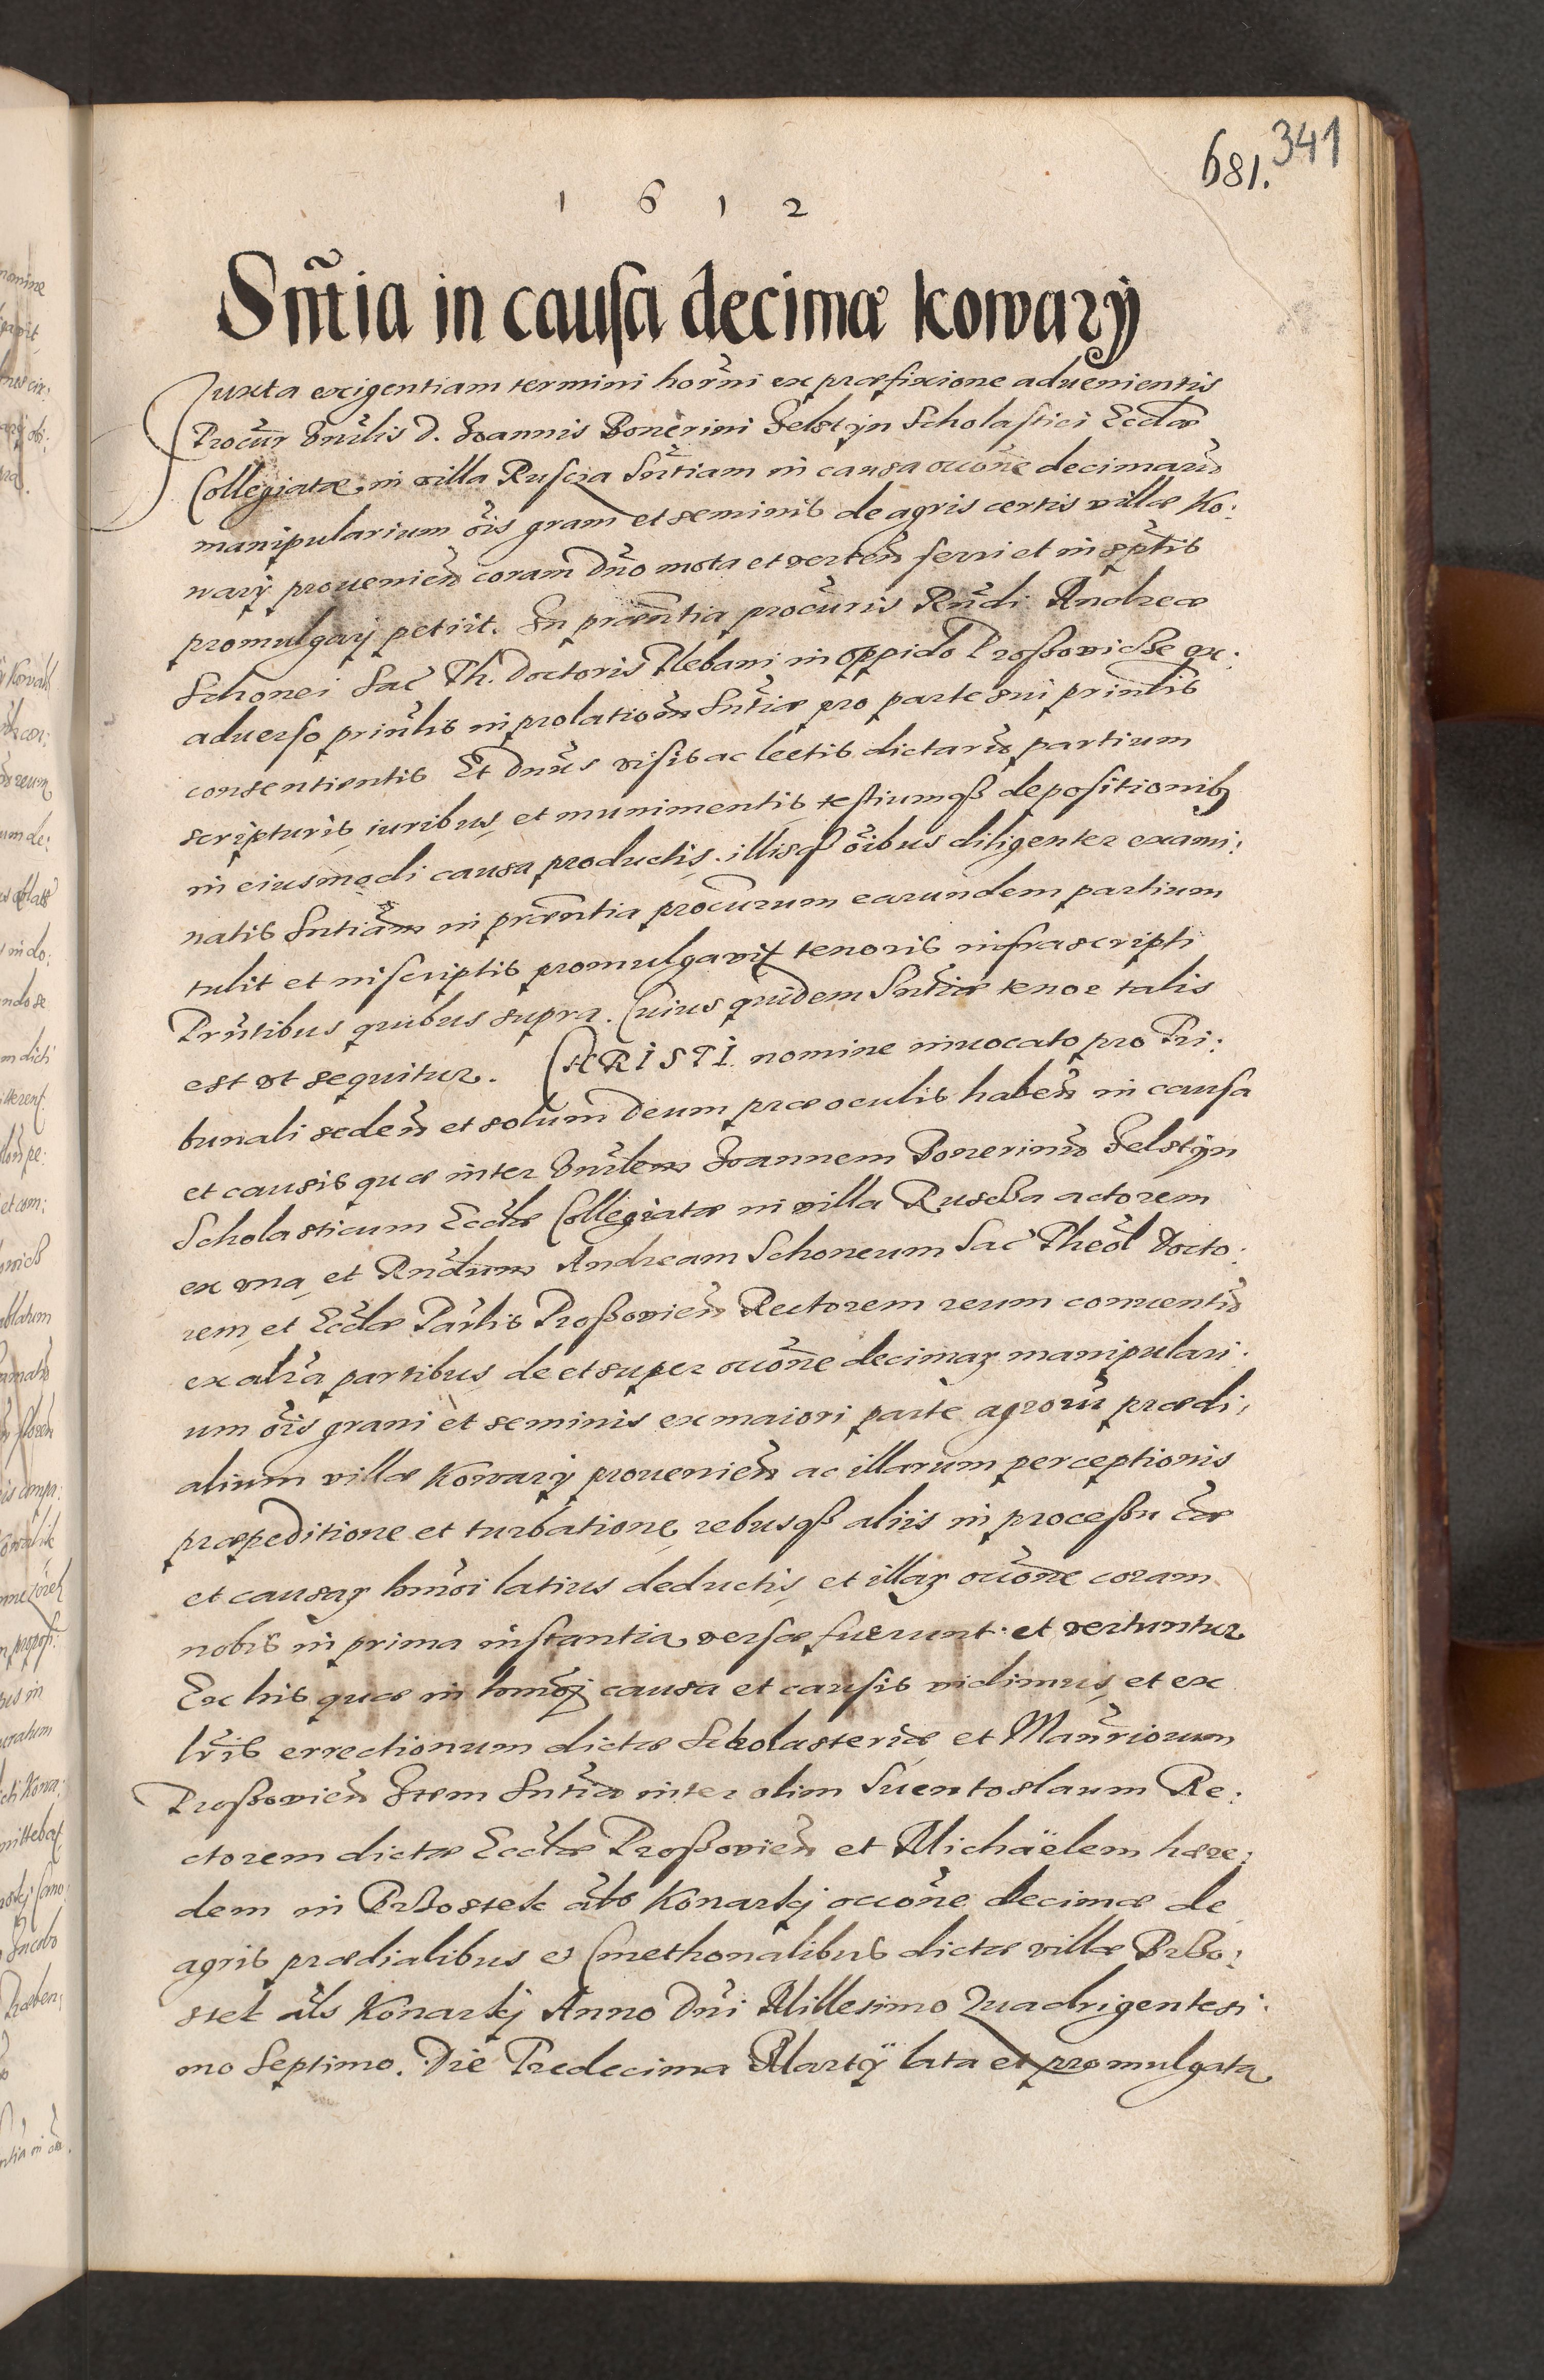 681. 341
1 6 1 2
Sñtia in causa decimæ Kowarÿ
Juxta exigentiam termini horñi ex præfixione aduenientis
Procur̃ Vñilis D. Joannis Bonerini Felstÿn Scholastici Eccłæ
Collegiatæ, in villa Ruscza Sñtiam in causa occõne decimarũ
manipularium õis grani et seminis de agris certis villæ Ko:
warÿ prouenieñ coram Dño mota et verteñ ferri et in sptis
promulgarj petiit. In præñtia procuris Rñdi Andreæ
Schonei Sac̃ Th. Doctoris Plebani in oppido Proßovicze ex:
aduerso priñlis in prolationẽm Sñtiæ pro parte sui priñlis
consentientis Et Dñus visis ac lectis dictarũ partium
scripturis, iuribus, et munimentis, testiumqß depositionibʒ
in eiusmodi causa productis, illisqß õibus diligenter exami:
natis Sñtiam in præñtia procurum earundem partium
tulit et in scriptis promulgavit tenoris infrascripti
Prñtibus quibus supra. Cuius quidem Sñtiæ tenor talis
est vt sequitur. CHRISTI nomine inuocato pro Tri:
bunali sedeñ et solum Deum præ oculis habeñ in causa
et causis quæ inter Vñilem Joannem Bonerinũ Felstÿn
Scholasticum Eccłæ Collegiatæ in villa Ruscza actorem
ex vna, et Rñdum Andream Schoneum Sac̃ Theol̃ Docto:
rem, et Eccłæ Par̃lis Proßovieñ Rectorem reum conuentũ
ex alr̃a partibus, de et super occõne decimaʒ manipulari:
um õis grani et seminis ex maiori parte agrorũ prædi:
alium villæ Kowarÿ prouenieñ ac illarum perceptionis
præpeditione et turbatione, rebusqß aliis in processu cæ
et causaʒ hmõi latius deductis, et illaʒ occõne coram
nobis in prima instantia, versæ fuerunt et vertuntur
Ex his quæ in hmõj causa et causis vidimus, et ex
lr̃is errectionum dictæ Scholasteriæ et Mañriorum
Proßovieñ Item Sñtia inter olim Suentoslaum Re:
ctorem dictæ Eccłæ Proßovieñ et Michäelem hære:
dem in Brzostek al̃s Konarkj occõne decimæ de
agris prædialibus et Cmethonalibus dictæ villæ Brzo:
stek al̃s Konarkj Anno Dñi Millesimo Quadrigentesi:
mo Septimo. Die Tredecima Martÿ lata et promulgata